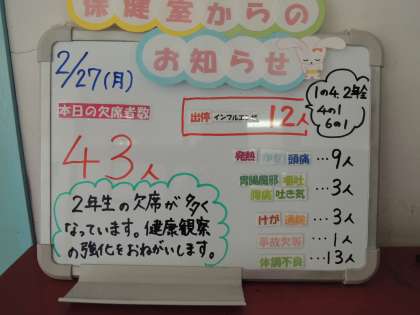 保健室からの
お知らせ
2/27(月)
本日の欠席者数
43人
出停 インフルエンザ 12人
1の4.2年全
4の1
6の1
発熱 頭痛 …9人
胃腸風邪 嘔吐
腹痛 吐き気 …3人
けが 通院 …3人
事故欠等 …1人
体調不良 …13人
2年生の欠席が多く
なっています。健康観察
の強化をおねがいします。